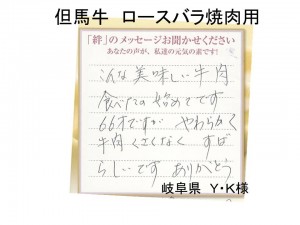 但馬牛　ロースバラ焼肉用
「絆」のメッセージお聞かせください
あなたの声が、私達の元気の素です！
こんな美味しい牛肉
食べたの始めてです
66才ですが　やわらかく
牛肉くさくなく　すば
らしいです　ありがとう
岐阜県　Y・K様